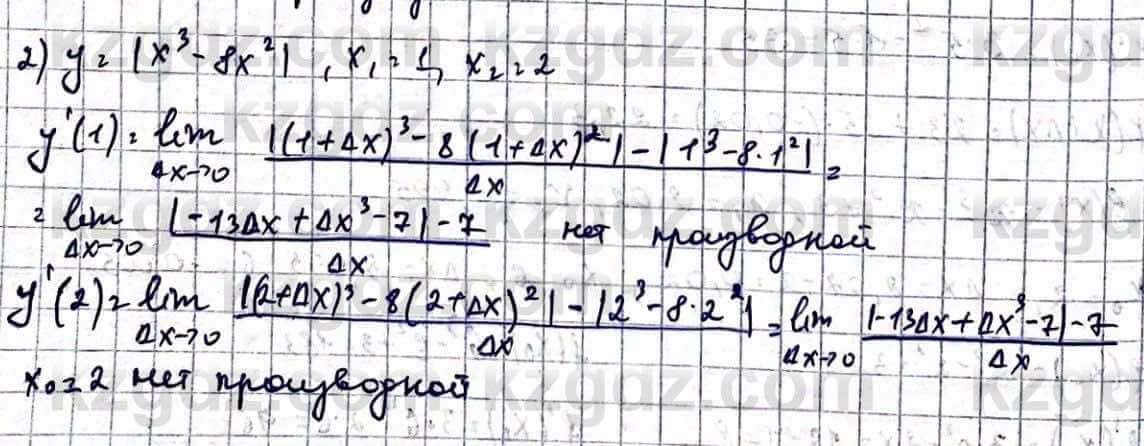 2) y = |x³ - 8x²|, x₁ = 1, x₂ = 2
y'(1) = lim Δx→0 (|(1+Δx)³ - 8(1+Δx)²| - |1³ - 8·1²|) / Δx =
= lim Δx→0 (|-13Δx + Δx³ - 7| - 7) / Δx нет производной
y'(2) = lim Δx→0 (|(2+Δx)³ - 8(2+Δx)²| - |2³ - 8·2²|) / Δx = lim Δx→0 (|-13Δx + Δx³ - 7| - 7) / Δx
x₀ = 2 нет производной
kzgdz.com